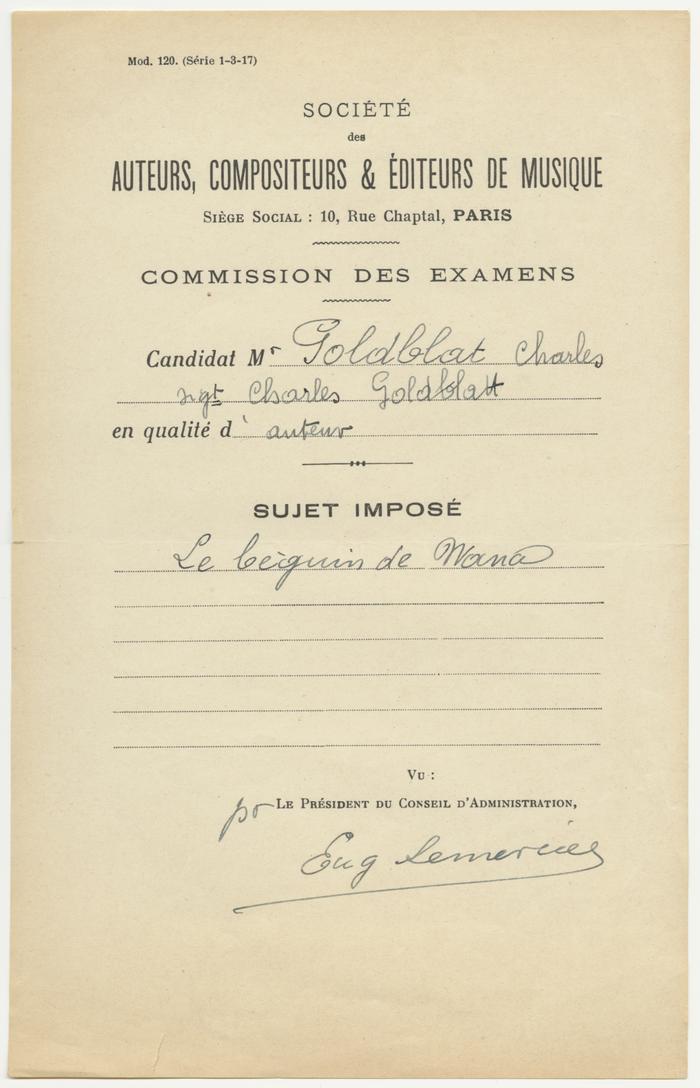 Mod. 120. (Série 1-3-17)
SOCIÉTÉ
des
AUTEURS, COMPOSITEURS & ÉDITEURS DE MUSIQUE
SIÈGE SOCIAL : 10, Rue Chaptal, PARIS
COMMISSION DES EXAMENS
Candidat Mr Goldblat Charles
sgt Charles Goldblatt
en qualité d' auteur
SUJET IMPOSÉ
Le béguin de Wana
VU :
po LE PRÉSIDENT DU CONSEIL D'ADMINISTRATION,
Eug Lemercier